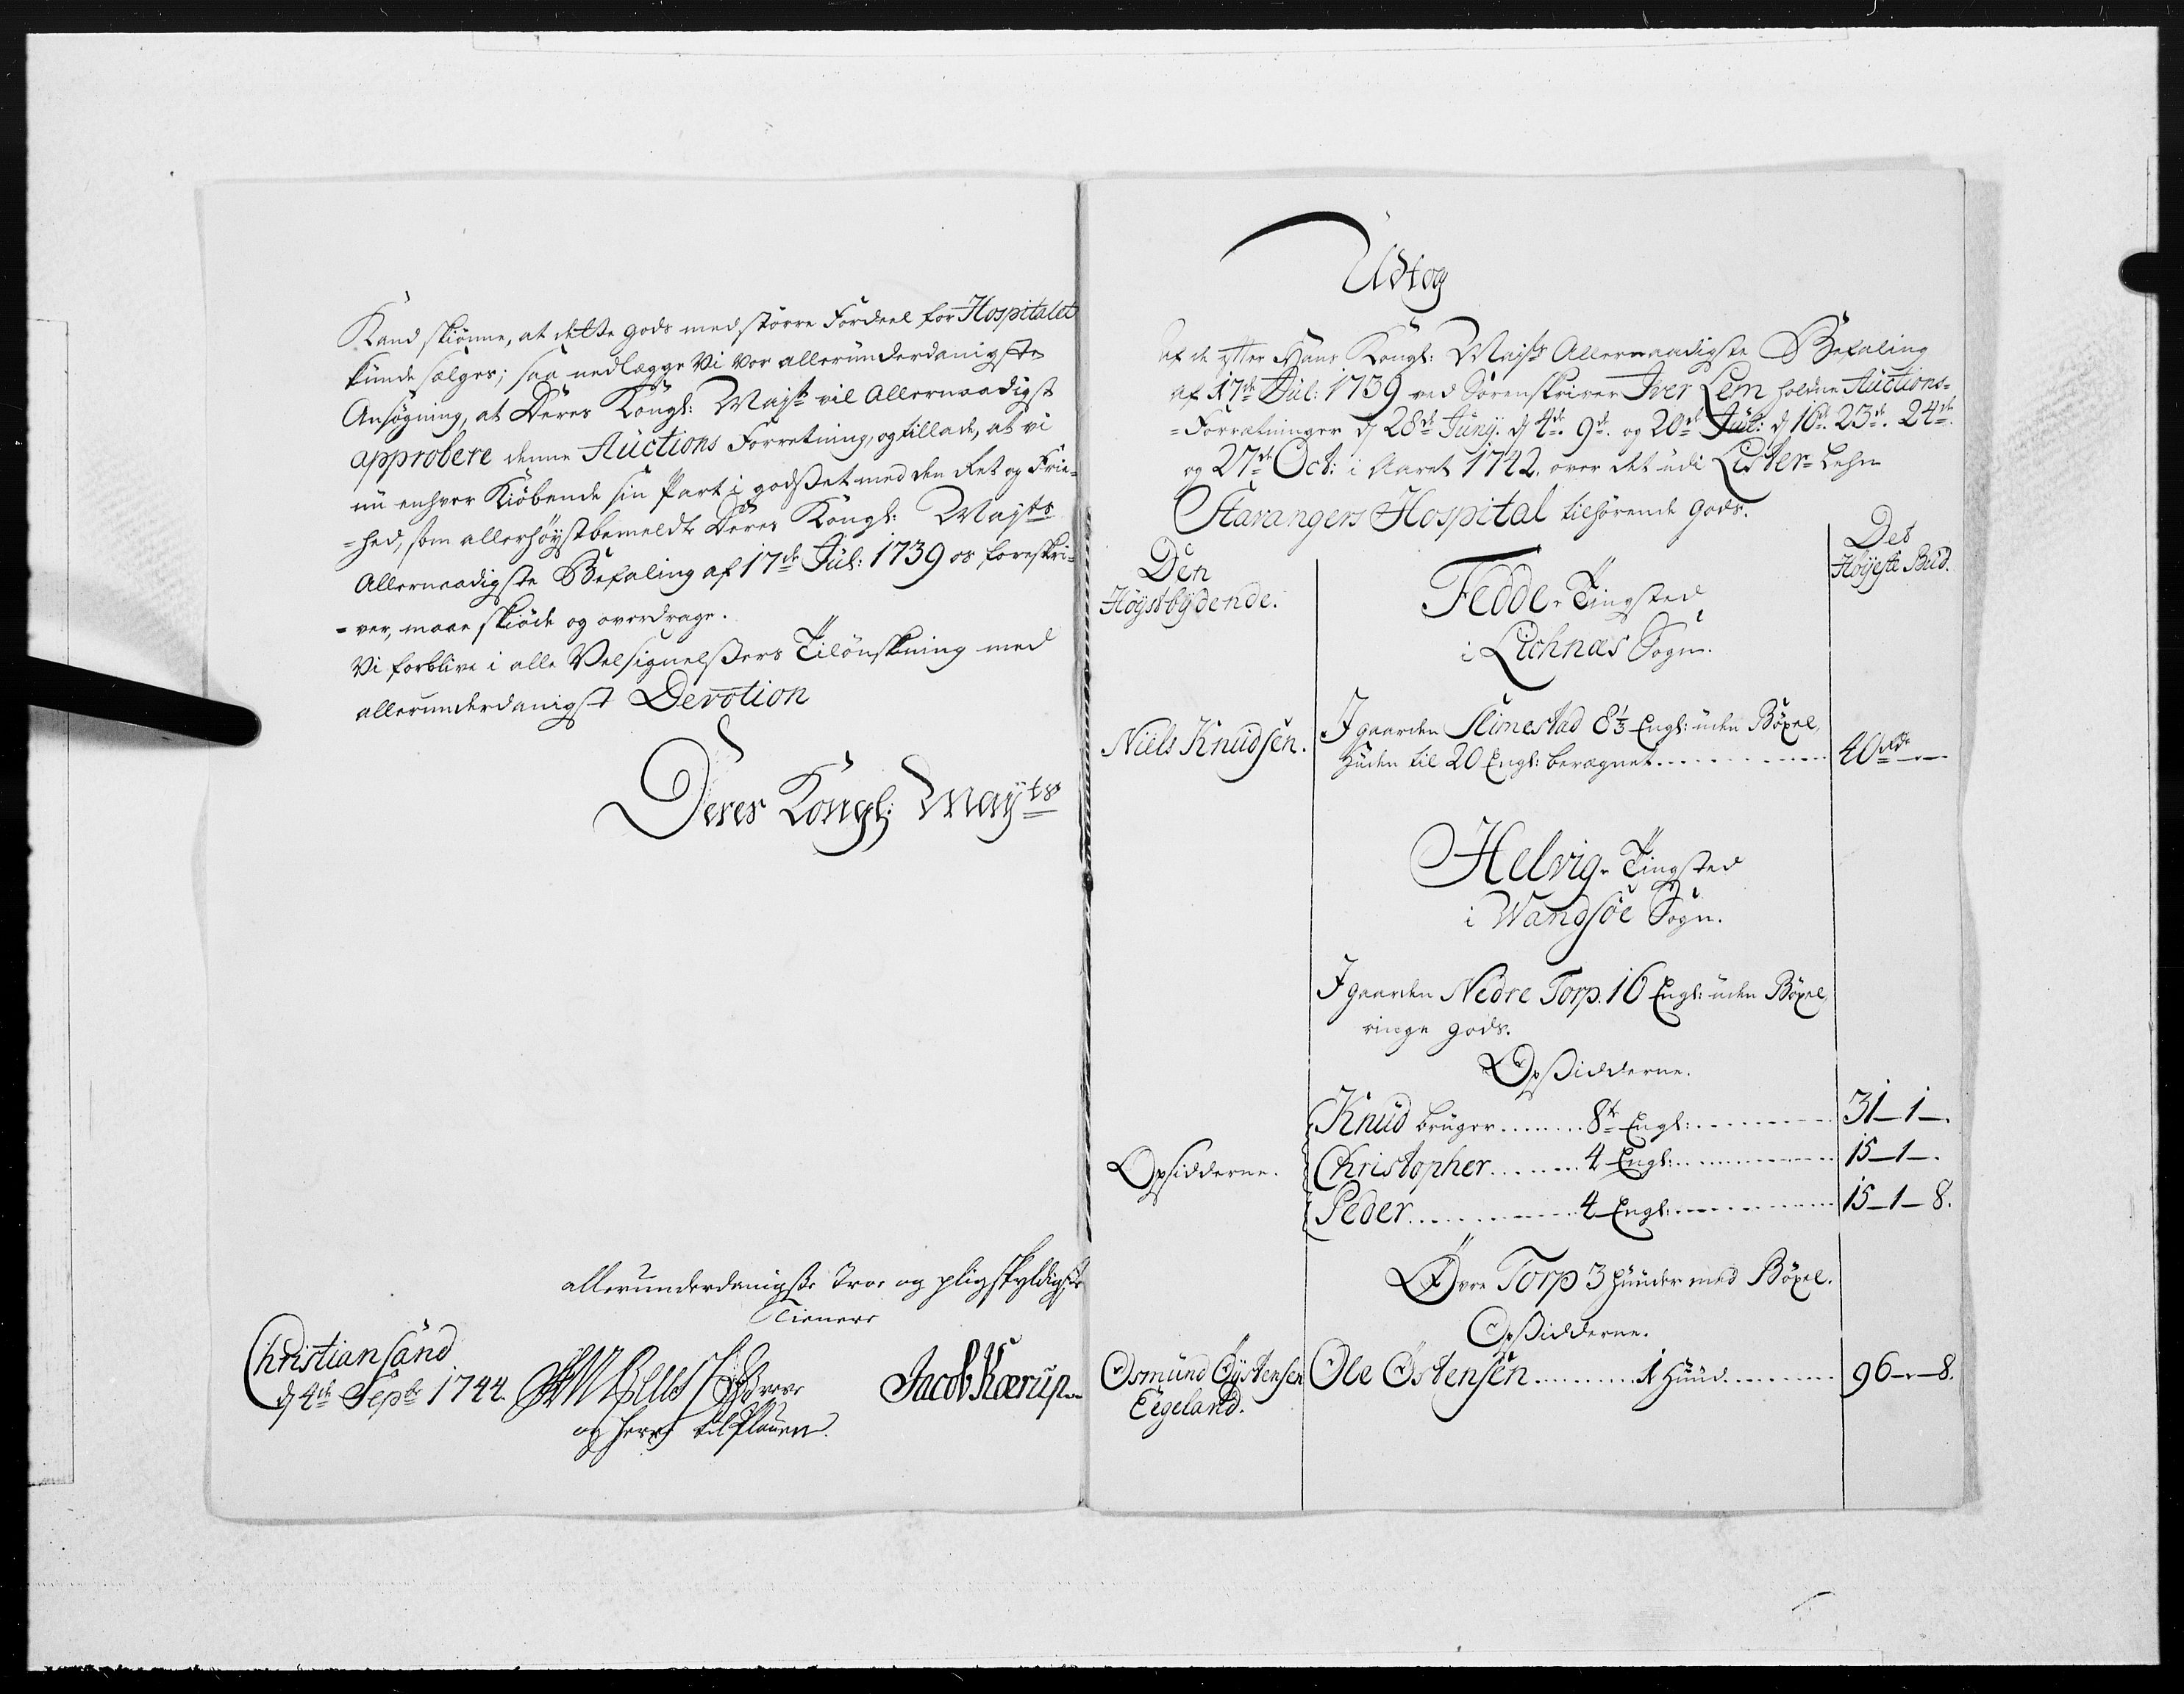 Kand skiønne, at dette gods med större Fordeel for Hospitalet
kunde sælges; saa nedlægge Vi vor allerunderdanigste
Ansøgning, at Deres Kongl: Mayst vil Allernaadigst
approbere denne Auctions Forretning, og tillade, at vi
nu enhver Kiøbende sin Part i godset med den Ret og Frie-
=hed, som allerhøystbemeldte Deres Kongl: Mayts
Allernaadigste Befaling af 17de Jul: 1739 os foreskri-
=ver, maae skiøde og overdrage.
Vi forblive i alle Velsignelsers Tilønskning med
allerunderdanigst Devotion
Deres Kongl: Mayts
allerunderdanigste Troe og pligskyldigste
Tienere
Christiansand
d 4de Septr 1744.
Jacob Kærup
og Herre til
Udtog
Af de efter Hans Kongl: Mayts Allernaadigste Befaling
af 17de Jul: 1739 ved Sorenskriver Iver Lem holdene Auctions-
=Forretninger d 28de Juny. d 4de. 9de. og 20de Jul: d 16de. 23de. 24de.
og 27de Oct: i Aaret 1742. over det udi Lister-Lehn
Stavangers Hospital tilhørende Gods.
Den
Höystbydende.
Det
Höyeste Bud.
Fedde-Tingsted
i Liehnæs Sogn.
Niels Knudsen.
I gaarden Slimestad 8 1/3 Engl: uden Böxel,
Huden til 20 Engl: beregnet
40 Rdr
Helvig-Tingsted
i Wandsöe Sogn.
I gaarden Nedre Torp. 16 Engl: uden Böxel,
ringe gods.
Opsidderne.
Knud bruger 8te Engl: 31-1-.
Opsidderne. Christopher 4 Engl: 15-1-.
Peder 4 Engl: 15-1-8.
Øvre Torp 3 Huuder med Böxel.
Opsidderne.
Osmund Öystensen Ole Östensen 1 Huud 96-"-8.
Eegeland.